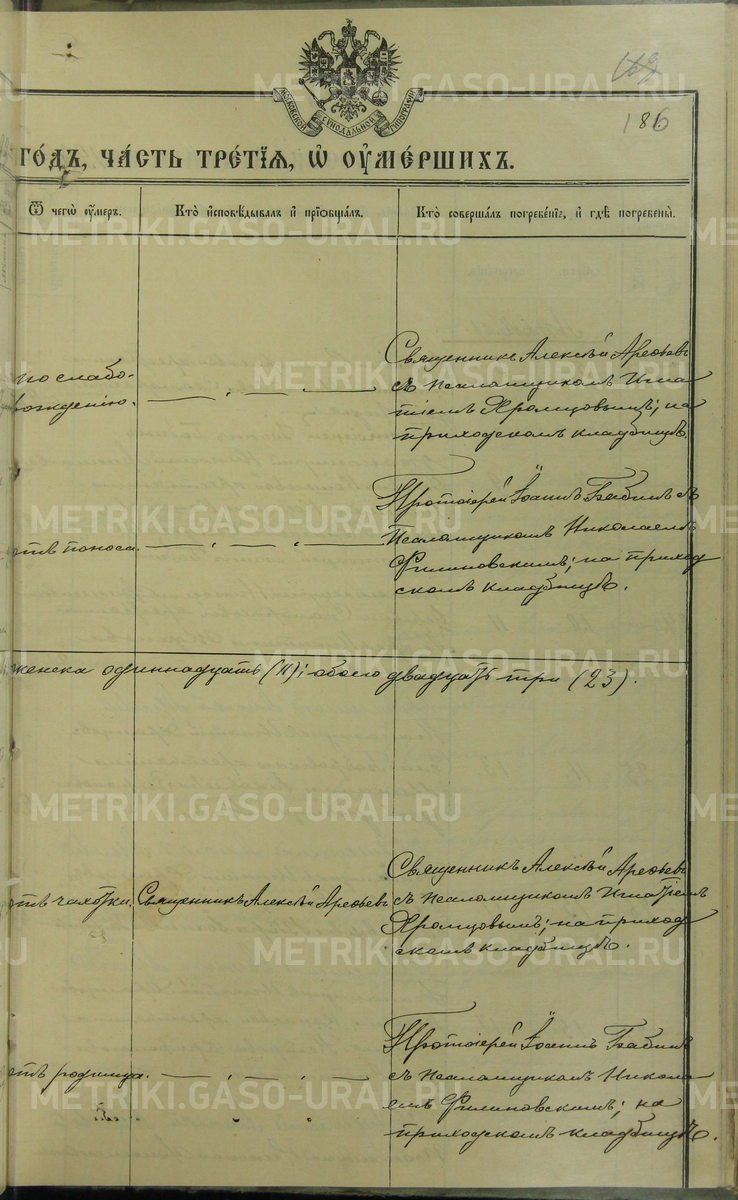 169
186
МОСКОВСКОЙ СѴНОДАЛЬНОЙ ТИПОГРАФІИ
го́дъ, ча́сть тре́тїѧ, ѡ᳆ ᲂу҆ме́ршихъ.
Ѿ чегѡ̀ ᲂу҆́меръ.
Кто̀ и҆сповѣ́дывалъ и҆ прїѡбща́лъ.
Кто̀ соверша́лъ погребе́нїе, и҆ гдѣ̀ погребены̀.
по слабо-
рожденію.
Священникъ Алексѣй Арефьевъ
съ псаломщикомъ Игна
тіемъ Хромцовымъ; на
приходскомъ кладбищѣ.
отъ поноса.
Протоіерей Іоаннъ Бабинъ съ
Псаломщикомъ Николаемъ
Филиновскимъ; на приход
скомъ кладбищѣ.
женска одиннадцать (11); обоего двадцать три (23).
отъ чахотки.
Священникъ Алексѣй Арефьевъ
Священникъ Алексѣй Арефьевъ
съ псаломщикомъ Игнатіемъ
Хромцовымъ; на приход
скомъ кладбищѣ.
отъ родимца.
Протоіерей Іоаннъ Бабинъ
съ псаломщикомъ Никола
емъ Филиновскимъ; на
приходскомъ кладбищѣ.
METRIKI.GASO-URAL.RU